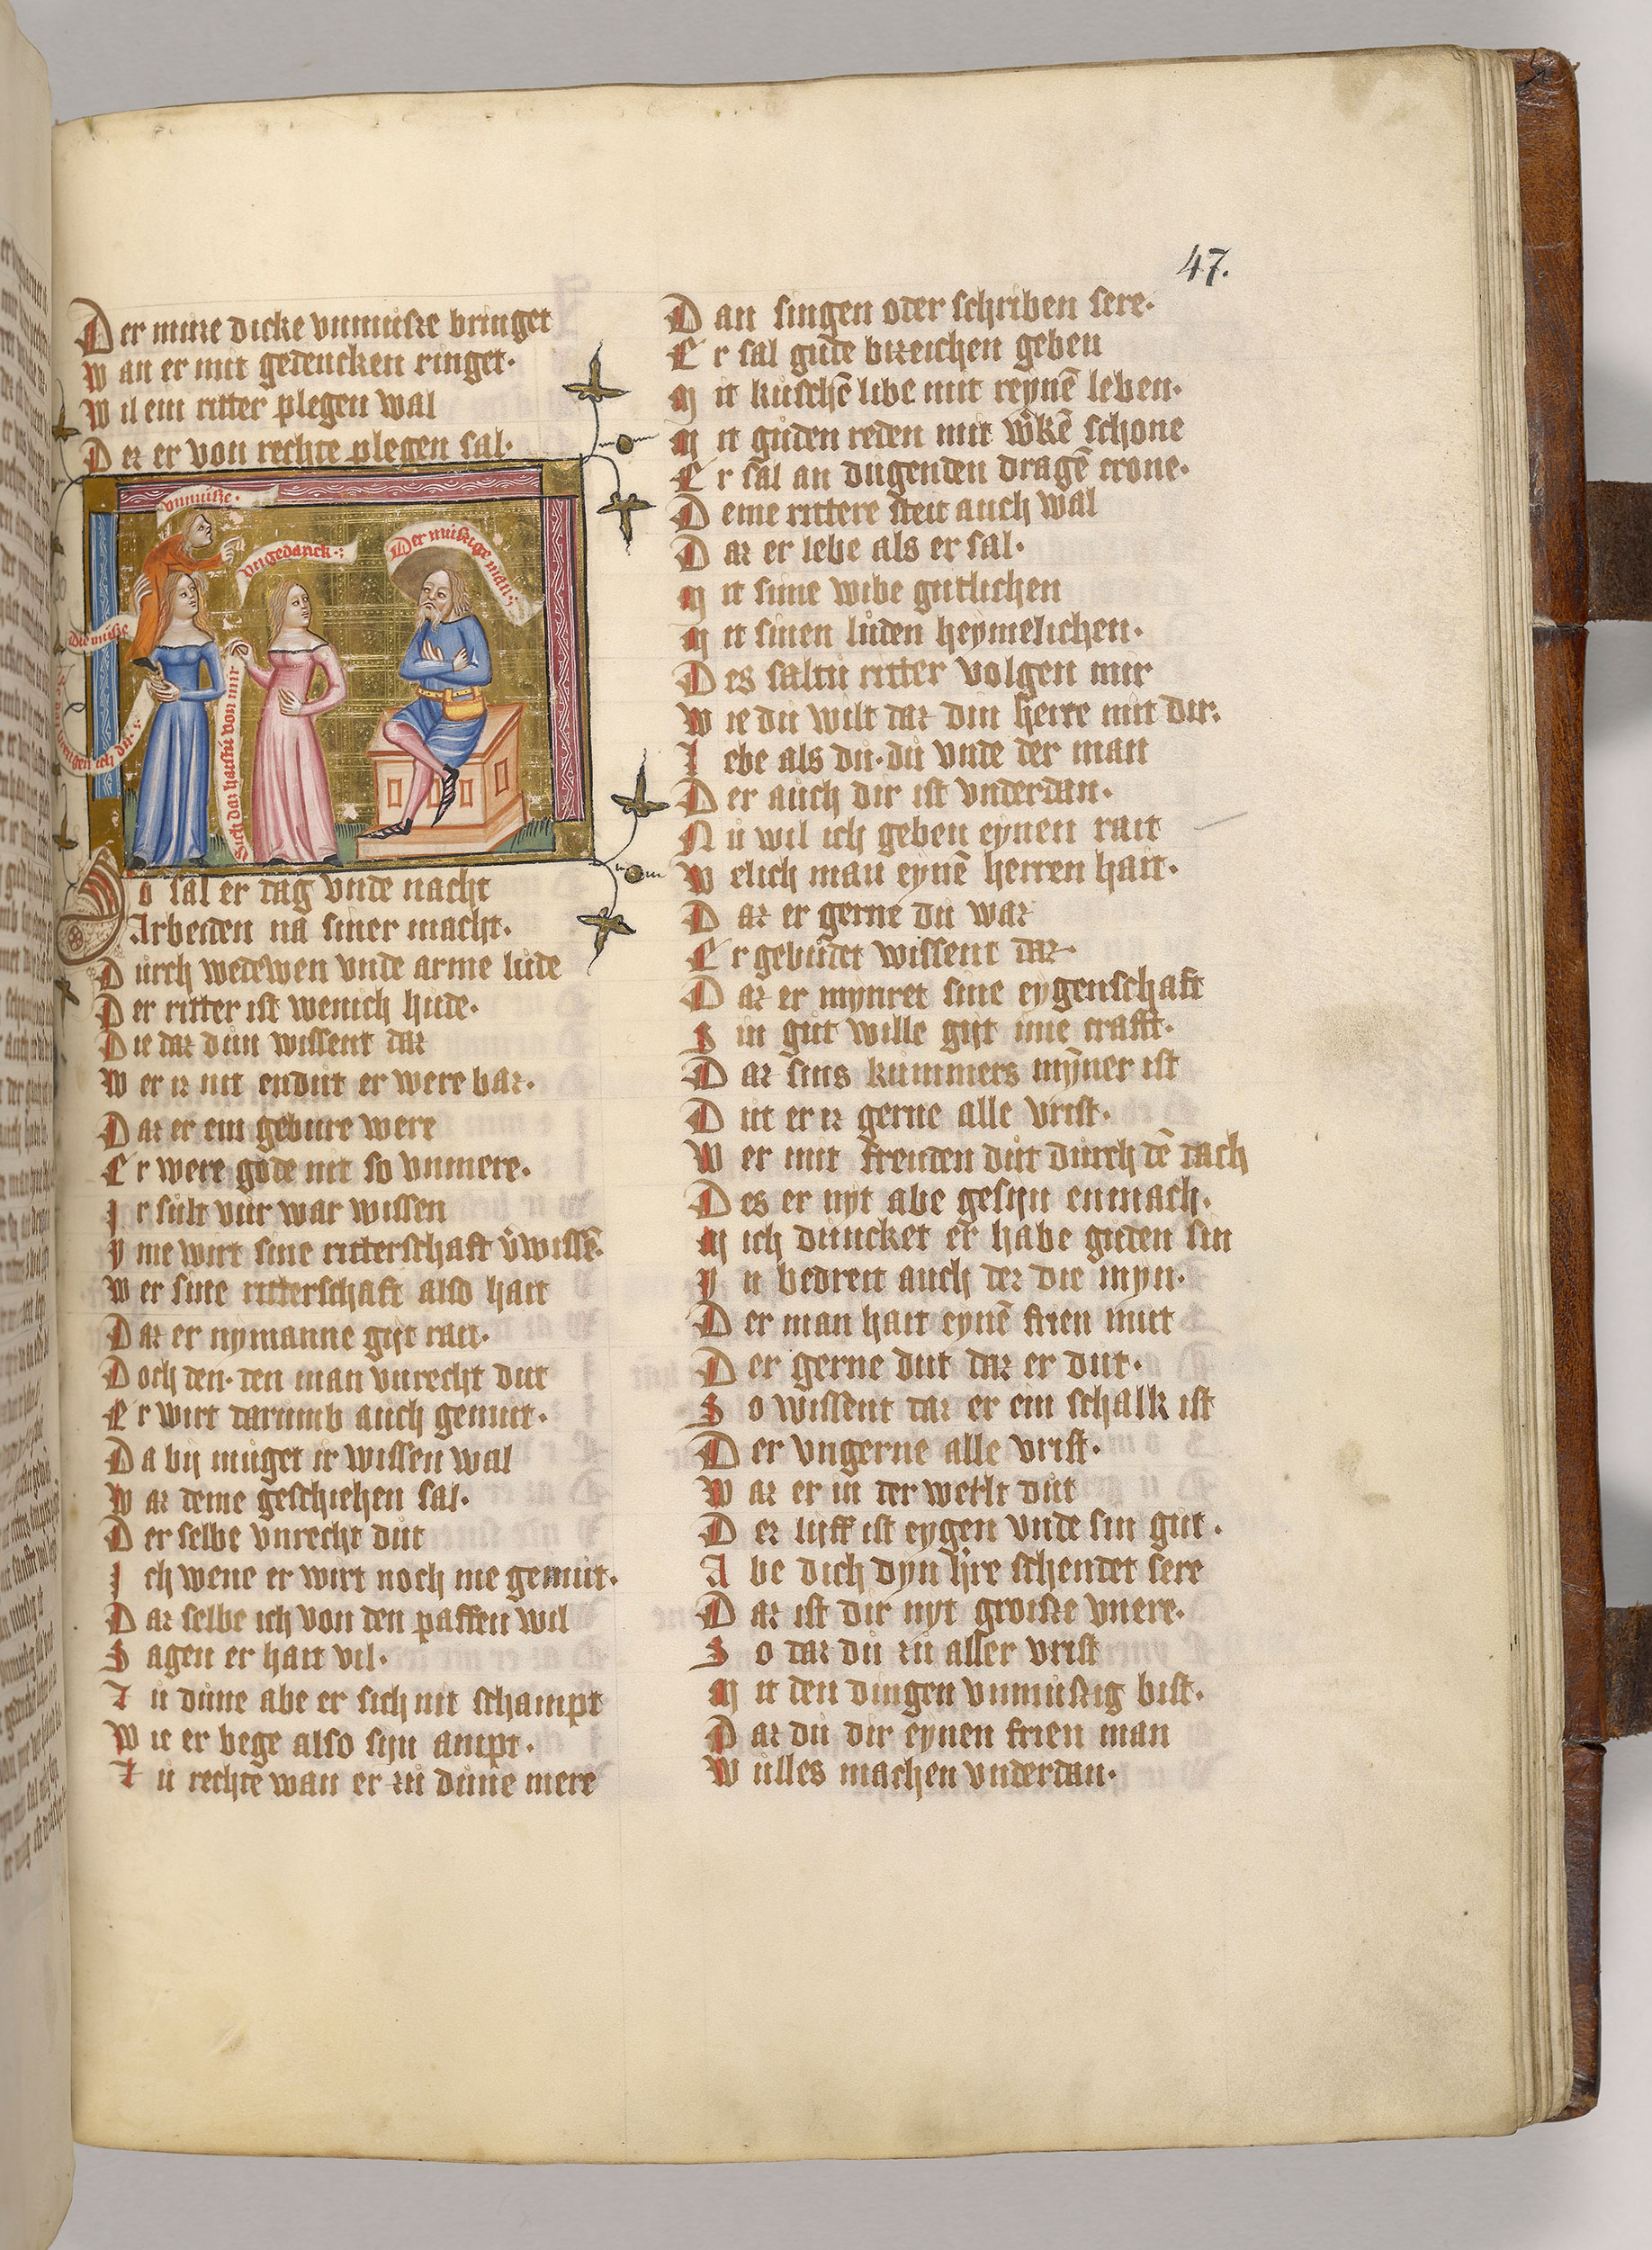 47.
Der muze dicke vnmuͦsze bringet
Wan er mit gedencken ringet.
Wil ein ritter plegen wal
Dez er von rechte plegen sal.
vnmuͦsze.
vngedanck.
Der muͦszige man
Die muͦsze
Sich daz hastu von mir
So sal er dag vnde nacht
Arbeiden na siner macht.
Durch wedewen vnde arme lude
Der ritter ist wenich hude.
Die daz duͦn wissent daz
Wer iz nit endut er were baz.
Daz er ein gebure were
Er were gode nit so vnmere.
Ir sult vur war wissen
Yme wirt sine ritterschaft v̉wissē.
Wer sine ritterschaft also hait
Daz er nymanne gijt rait.
Doch den. den man vnrecht dut
Er wirt darumb auch gemut.
Da bij muget ir wissen wal
Waz deme geschiehen sal.
Der selbe vnrecht dut
Ich wene er wirt noch me gemut.
Daz selbe ich von den paffen wil
Sagen er hait vil.
Zu dune abe er sich nit schampt
Wie er bege also sijn ampt.
Zu rechte wan er zu dune mere
Dan singen oder schriben sere.
Er sal gude bizeichen geben
Mit kuschē libe mit reynē leben.
Mit guden reden mit w̉kē schone
Er sal an dugenden dragē crone.
Deme rittere steit auch wal
Daz er lebe als er sal.
Mit sime wibe gutlichen
Mit sinen luden heymelichen.
Des saltu ritter volgen mir
Wie du wilt daz din herre mit dir.
Lebe als du. du vnde der man
Der auch dir ist vnderdan.
Nu wil ich geben eynen rait
Welich man eynē herren hait.
Daz er gerne du waz
Er gebudet wissent daz.
Daz er mynret sine eygenschaft
Sin gut wille gijt ime crafft.
Daz sins kummers mȳner ist
Dut er iz gerne alle vrist.
Wer mit freuden dut durch dē dach
Des er nyt abe gesijn enmach.
Mich duncket er habe guden sin
Yn bedreit auch dez die mijn.
Der man hait eynē frien mut
Der gerne dut daz er dut.
So wissent daz er ein schalk ist
Der vngerne alle vrist.
Waz er in der werlt dut
Dez lijff ist eygen vnde sin gut.
Abe dich dyn h̉re schendet sere
Daz ist dir nyt groisze vnere.
So daz du zu aller vrist
Mit den dingen vnmuszig bist.
Daz du dir eynen frien man
Wulles machen vnderdan.